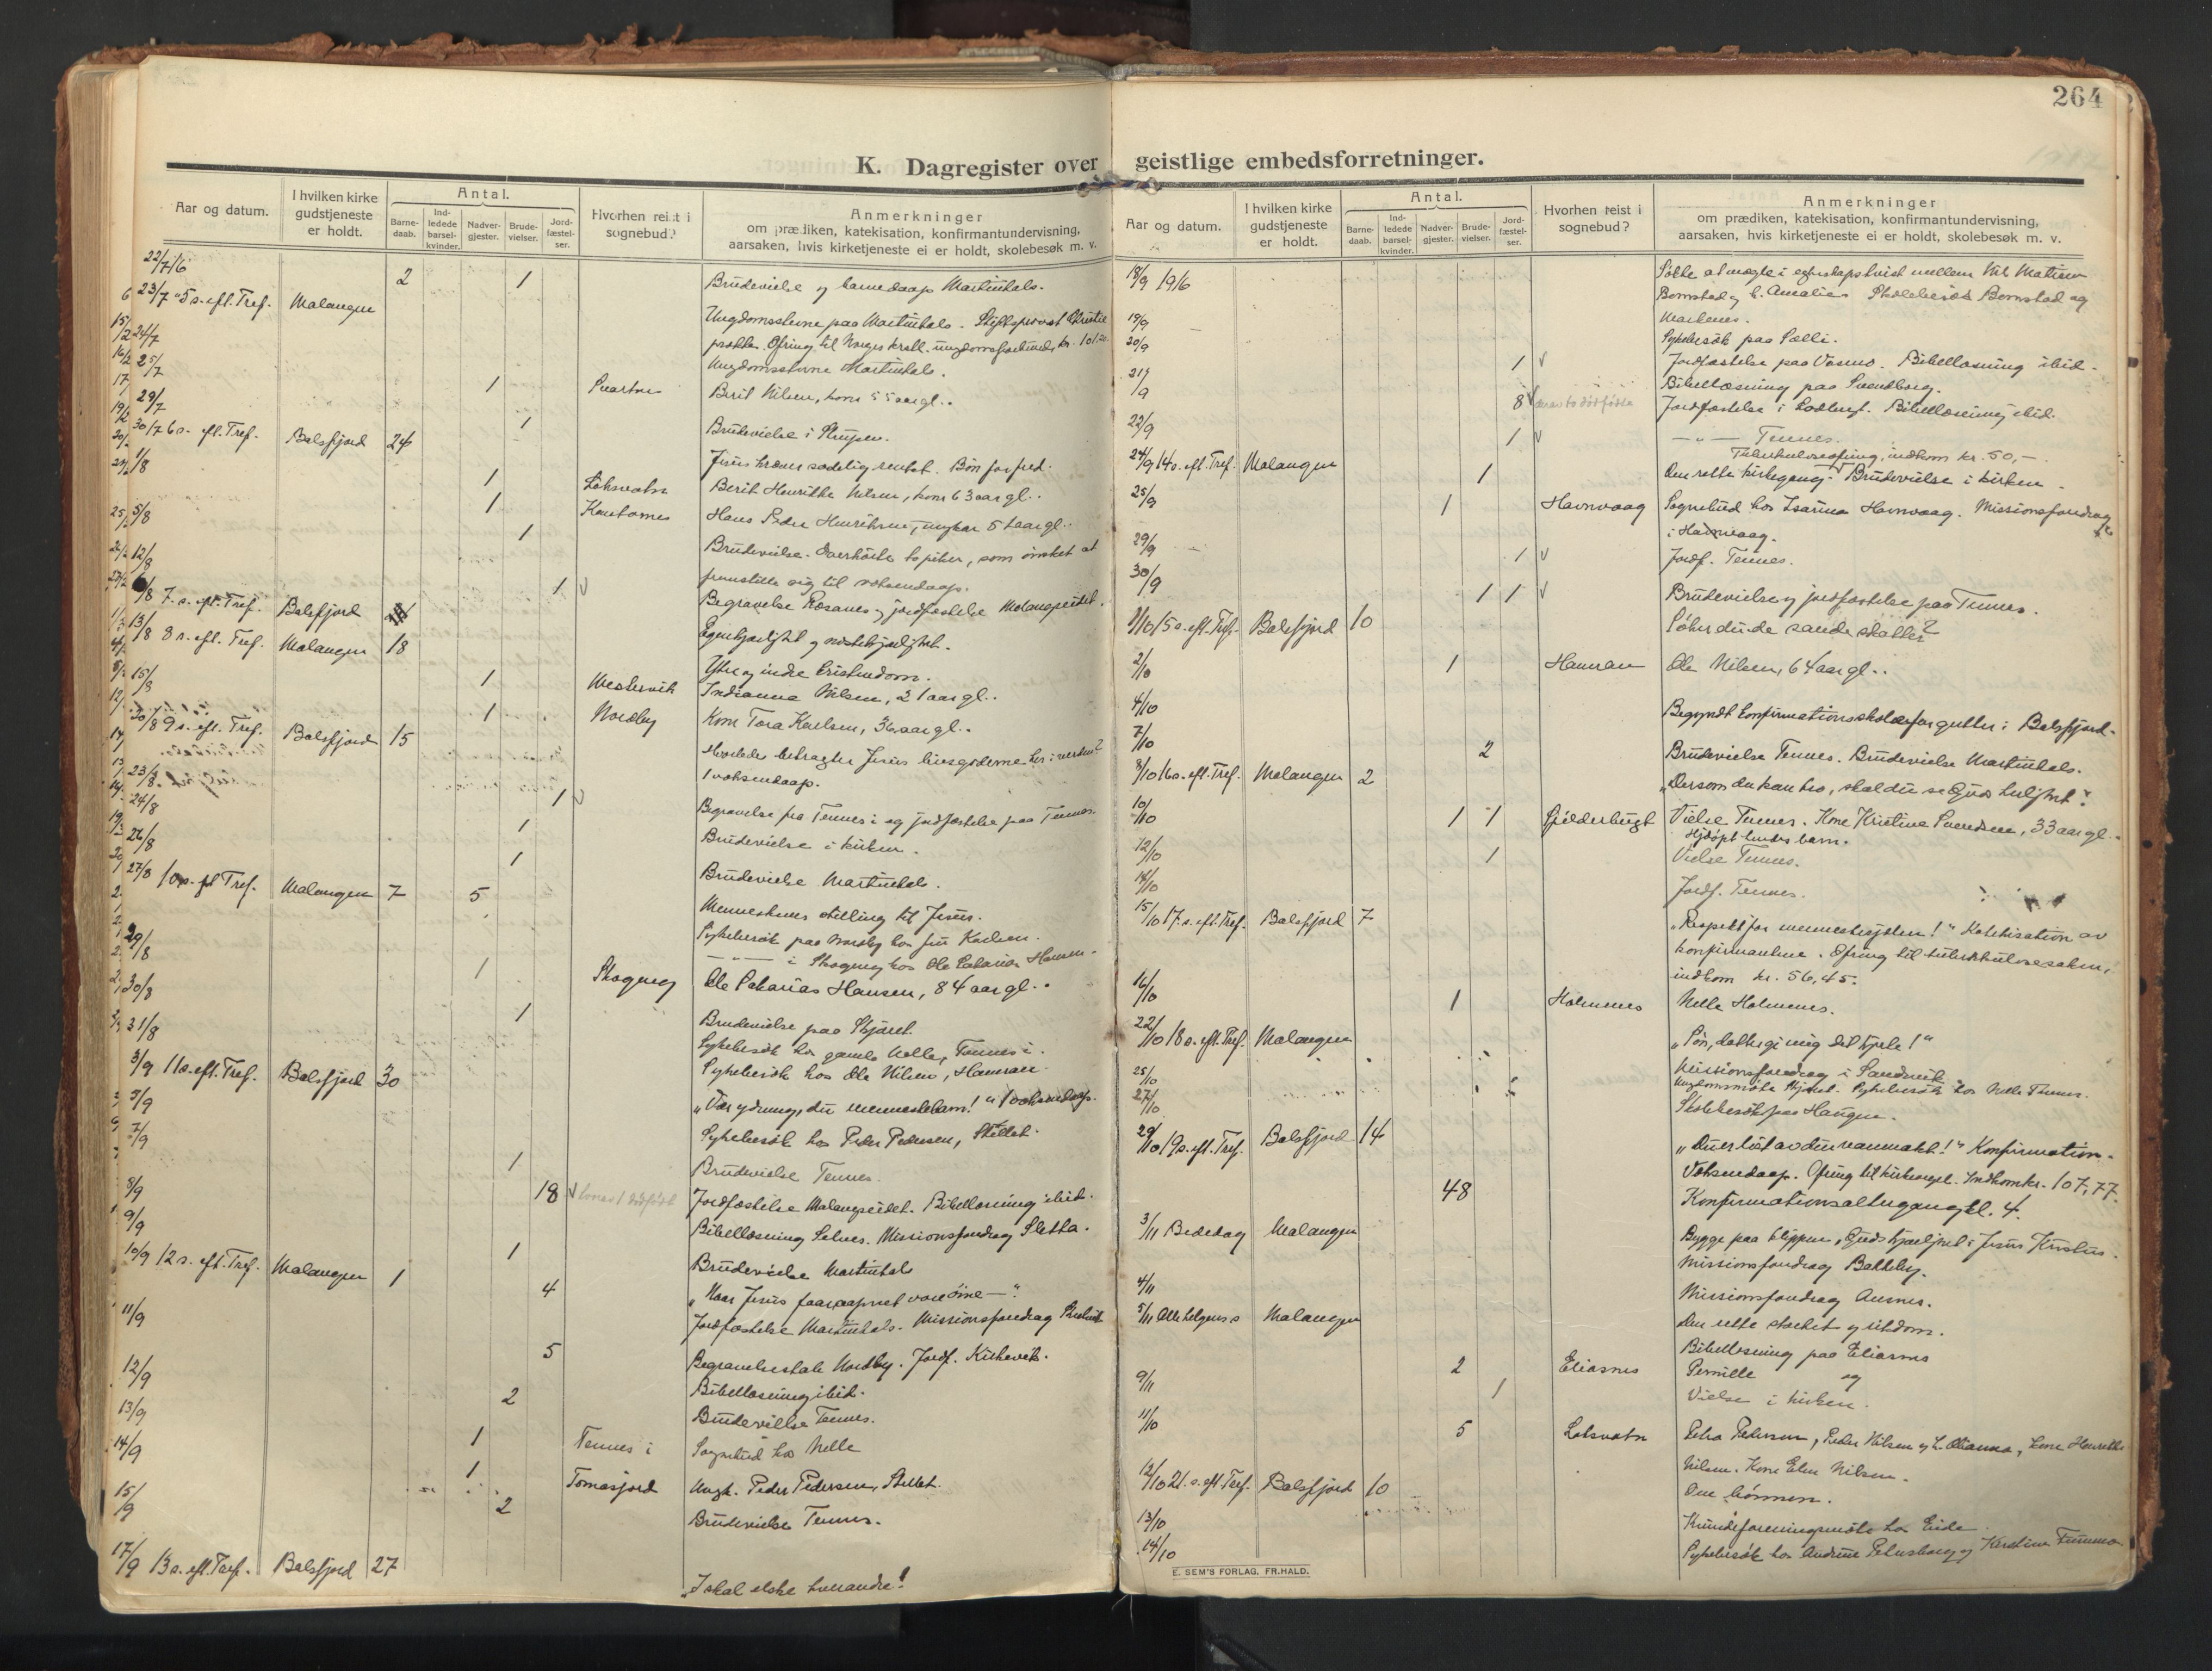 264
K. Dagregister over geistlige embedsforretninger.
Aar og datum.
I hvilken kirke gudstjeneste er holdt.
Antal.
Barne-daab.
Ind-ledede barsel-kvinder.
Nadver-gjester.
Brude-vielser.
Jord-fæstel-ser.
Hvorhen reist i sognebud?
Anmerkninger
om prædiken, katekisation, konfirmantundervisning,
aarsaken, hvis kirketjeneste ei er holdt, skolebesøk m. v.
22/7 16 2 1 Brudevielse og barnedaap Martinhals.
23/7 5 s. eft. Tref. Malangen
Ungdomsstevne paa Martinhals. Stiftsprovst Christie
24/7
25/7 Ungdomsstevne Martinhals.
1 Svartnes Berit Nilsen, kone 55 aar gl.
29/7 1 Brudevielse i Strupen.
30/7 6 s. eft. Tref. Balsfjord 24
1/8 1 Berit Henrikke Nilsen, kone 63 aar gl.
1 Kantornes Hans Peder Henriksen, ungkar
5/8 1 Brudevielse. Overhørte to piker, som ønsket at
fremstille sig til voksendaap.
12/8 1 v Begravelse Rosanes og jordfæstelse Malangseidet.
6/8 7. s. eft. Tref. Balsfjord
Egenkjærlighet og næstekjærlighet.
13/8 8 s. eft. Tref. Malangen 18 Ytre og indre kristendom.
15/8 1 Westervik Indianna Nilsen, 21 aar gl.
1 Nordby Kone Tora Karlsen, 36 aar gl.
20/8 9 s. eft. Tref. Balsfjord 15
Hvorledes betragter Jesus livsgoderne her i verden?
1 voksendaap.
23/8 1 v Begravelse fra Tennes i og jordfæstelse paa Tennes.
24/8 1 Brudevielse i kirken.
26/8 1 Brudevielse Martinhals.
27/8 10 s. eft. Tref. Malangen 7 5 Menneskenes stilling til Jesus.
29/8 Sykebesøk paa Nordby hos fru Karlsen.
— " — i Skogeng hos Ole Zakarias Hansen.
30/8 1 Skogeng Ole Zakarias Hansen, 84 aar gl.
31/8 1 Brudevielse paa Skjæret
Sykebesøk hos gamle Nelle, Tennes i.
Sykebesøk hos Ole Nilsen, Hamran.
3/9 11 s. eft. Tref. Balsfjord 30 "Vær ydmyg, du menneskebarn!" 1 voksendaap.
5/9 Sykebesøk hos Peder Pedersen,
7/9 1 Brudevielse Tennes.
8/9 18 v Jordfæstelse Malangseidet. Bibellæsning ibid.
9/9 Bibellæsning Selnes. Missionsforedrag Sletta.
1 Brudevielse Martinhals
10/9 12 s. eft. Tref. Malangen 1 4 "Naar Jesus faar aapnet vore öine —".
11/9 Jordfæstelse Martinhals. Missionsforedrag
5 Begravelsestale Nordby. Jordf. Kirkevik.
12/9 Bibellæsning ibid.
13/9 2 Brudevielse Tennes.
14/9 1 Tennes i Sognebud hos Nelle
1 Tomasjord Ungk. Peder Pedersen,
15/9 2 Brudevielse Tennes.
17/9 13 s. eft. Tref. Balsfjord 27 "I skal elske hverandre!"
Aar og datum.
I hvilken kirke gudstjeneste er holdt.
Antal.
Barne-daab.
Ind-ledede barsel-kvinder.
Nadver-gjester.
Brude-vielser.
Jord-fæstel-ser.
Hvorhen reist i sognebud?
Anmerkninger
om prædiken, katekisation, konfirmantundervisning,
aarsaken, hvis kirketjeneste ei er holdt, skolebesøk m. v.
18/9 1916 Søkte at mægle i egteskapstvist mellem
19/9 Sykebesøk paa
20/9 1 v Jordfæstelse paa Vasmo. Bibellæsning ibid.
21/9 Bibellæsning paa Svendborg.
8 v Jordfæstelse i Bibellæsning ibid.
22/9 1 v — " — Tennes.
Tuberkuloseofring, indkom kr. 50,—
24/9 14 s. eft. Tref. Malangen 1 Den rette kirkegang. Brudevielse i kirken.
25/9 1 Havnvaag Sognebud hos Isarina Havnvaag. Missionsforedrag
i Havnvaag.
29/9 1 v Jordf. Tennes.
30/9 1 1 v Brudevielse og jordfæstelse paa Tennes.
1/10 15 s. eft. Tref. Balsfjord 10 Søker du de sande skatter?
2/10 1 Hamran Ole Nilsen, 64 aar gl.
4/10 Begyndt konfirmationsskole for gutter i Balsfjord.
7/10 2 Brudevielse Tennes. Brudevielse Martinhals.
8/10 16 s. eft. Tref. Malangen 2 "Dersom du kan tro, skal du se Guds herlighet".
10/10 1 1 Vielse Tennes. Kone Kristine Svendsen, 33 aar gl.
Hjdøpt hendes barn.
12/10 1 Vielse Tennes.
14/10 Jordf. Tennes.
15/10 17. s. eft. Tref. Balsfjord 7 "Respekt for menneskesjælen!" Katekisation av
konfirmantene. Ofring til tuberkulosesaken,
indkom kr. 56,45.
16/10 1 Holmenes Nelle Holmenes.
22/10 18 s. eft. Tref. Malangen "Søn, datter gi mig dit hjerte!"
25/10 Missionsforedrag i Sandvik
Ungdomsmøte Skjæret. Sykebesøk hos Nelle Tennes.
27/10 Skolebesøk paa Haugen.
29/10 19 s. eft. Tref. Balsfjord 14 "Du er løst av din vanmakt!" Konfirmation.
Voksendaap. Ofring til kirkeorgel. Indkom kr. 107,77.
48 Konfirmationsaltergang kl. 4.
3/11 Bededag Malangen Bygge paa klippen, Guds kjærlighet i Jesus Kristus.
Missionsforedrag Bakkeby.
4/11 Missionsforedrag Aursnes.
5/11 Alle helgens s Malangen Den rette storhet og rikdom.
Bibellæsning paa Eliasnes
2 Eliasnes Pernille og
9/11 1 Vielse i kirken.
11/10 5 Petra Pedersen, Peder Nilsen og h. Olianna, kone Henrikke
Nilsen. Kone Elen Nilsen.
12/10 21. s. eft. Tref. Balsfjord 10 Om bönnen.
13/10 Kvindeforeningsmöte hos Eide.
14/10 Sykebesøk hos
E. SEM'S FORLAG, FR.HALD.